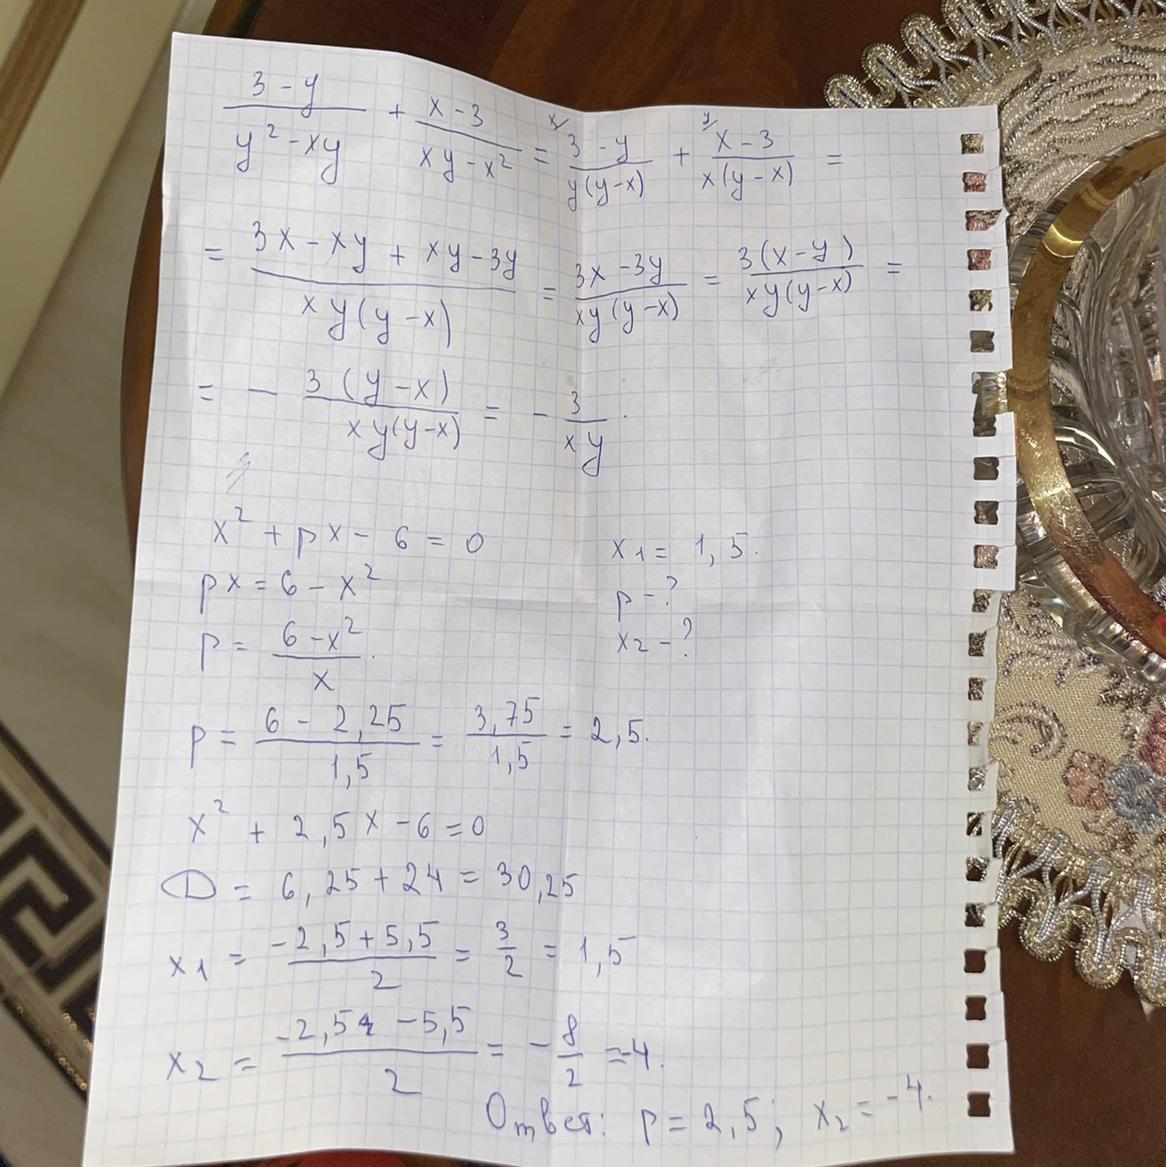 (3 - y)/(y² - xy) + (x - 3)/(xy - x²) = x/ (3 - y)/(y(y-x)) + y/ (x - 3)/(x(y-x)) =
= (3x - xy + xy - 3y)/(xy(y-x)) = (3x - 3y)/(xy(y-x)) = 3(x-y)/(xy(y-x)) =
= - 3(y-x)/(xy(y-x)) = - 3/(xy).
x² + px - 6 = 0
x₁ = 1,5.
px = 6 - x²
p - ?
p = (6 - x²)/x.
x₂ - ?
p = (6 - 2,25)/1,5 = 3,75/1,5 = 2,5.
x² + 2,5x - 6 = 0
D = 6,25 + 24 = 30,25
x₁ = (-2,5 + 5,5)/2 = 3/2 = 1,5
x₂ = (-2,5 - 5,5)/2 = - 8/2 = -4.
Ответ: p = 2,5; x₂ = -4.